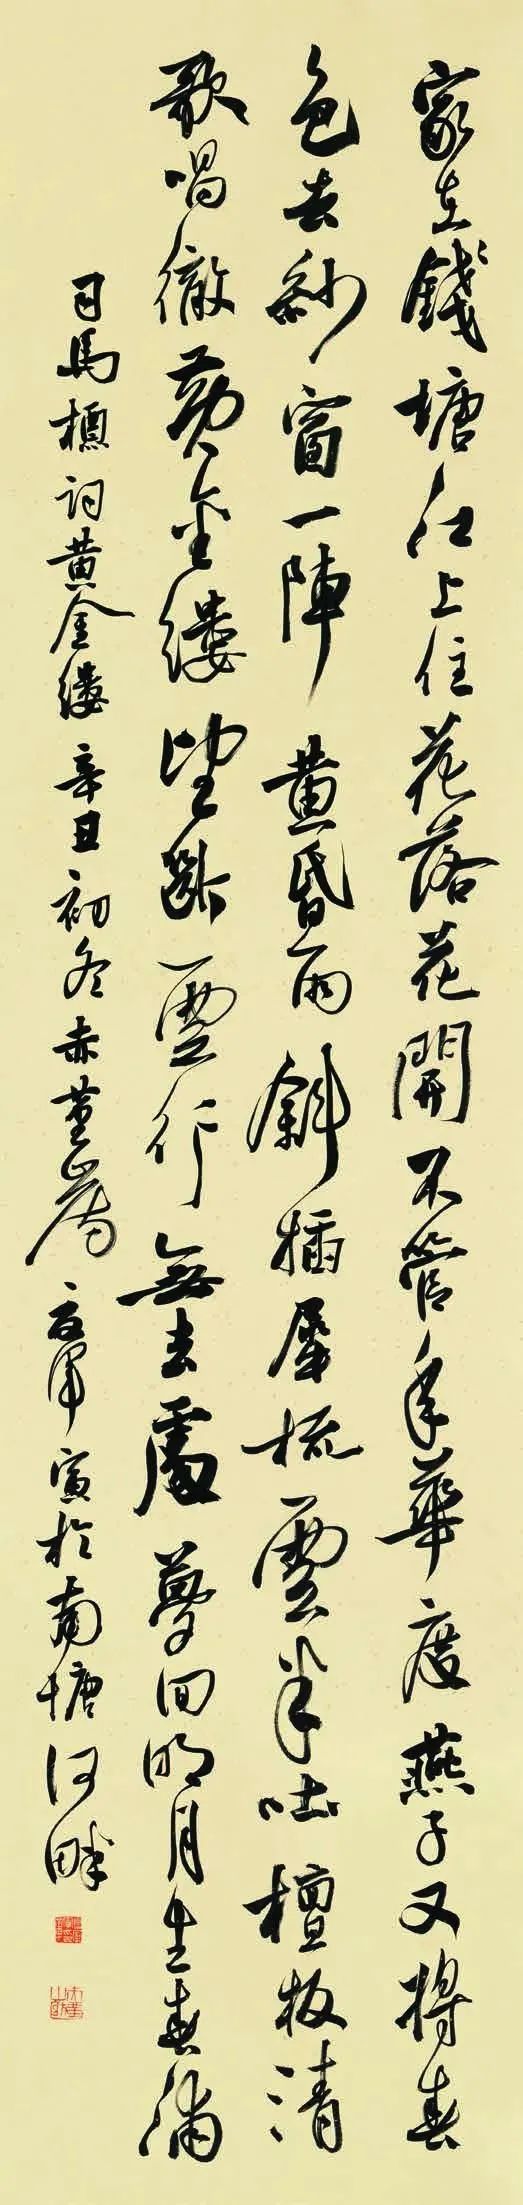 家在錢塘江上住花落花開不管年華度燕子又將春
色去紗窗一陣黃昏雨斜插犀梳雲半吐檀板清
歌唱徹黃金縷望斷雲行無去處夢回明月生春浦
司馬槱詞黃金縷辛丑初冬赤堇 於南塘河畔